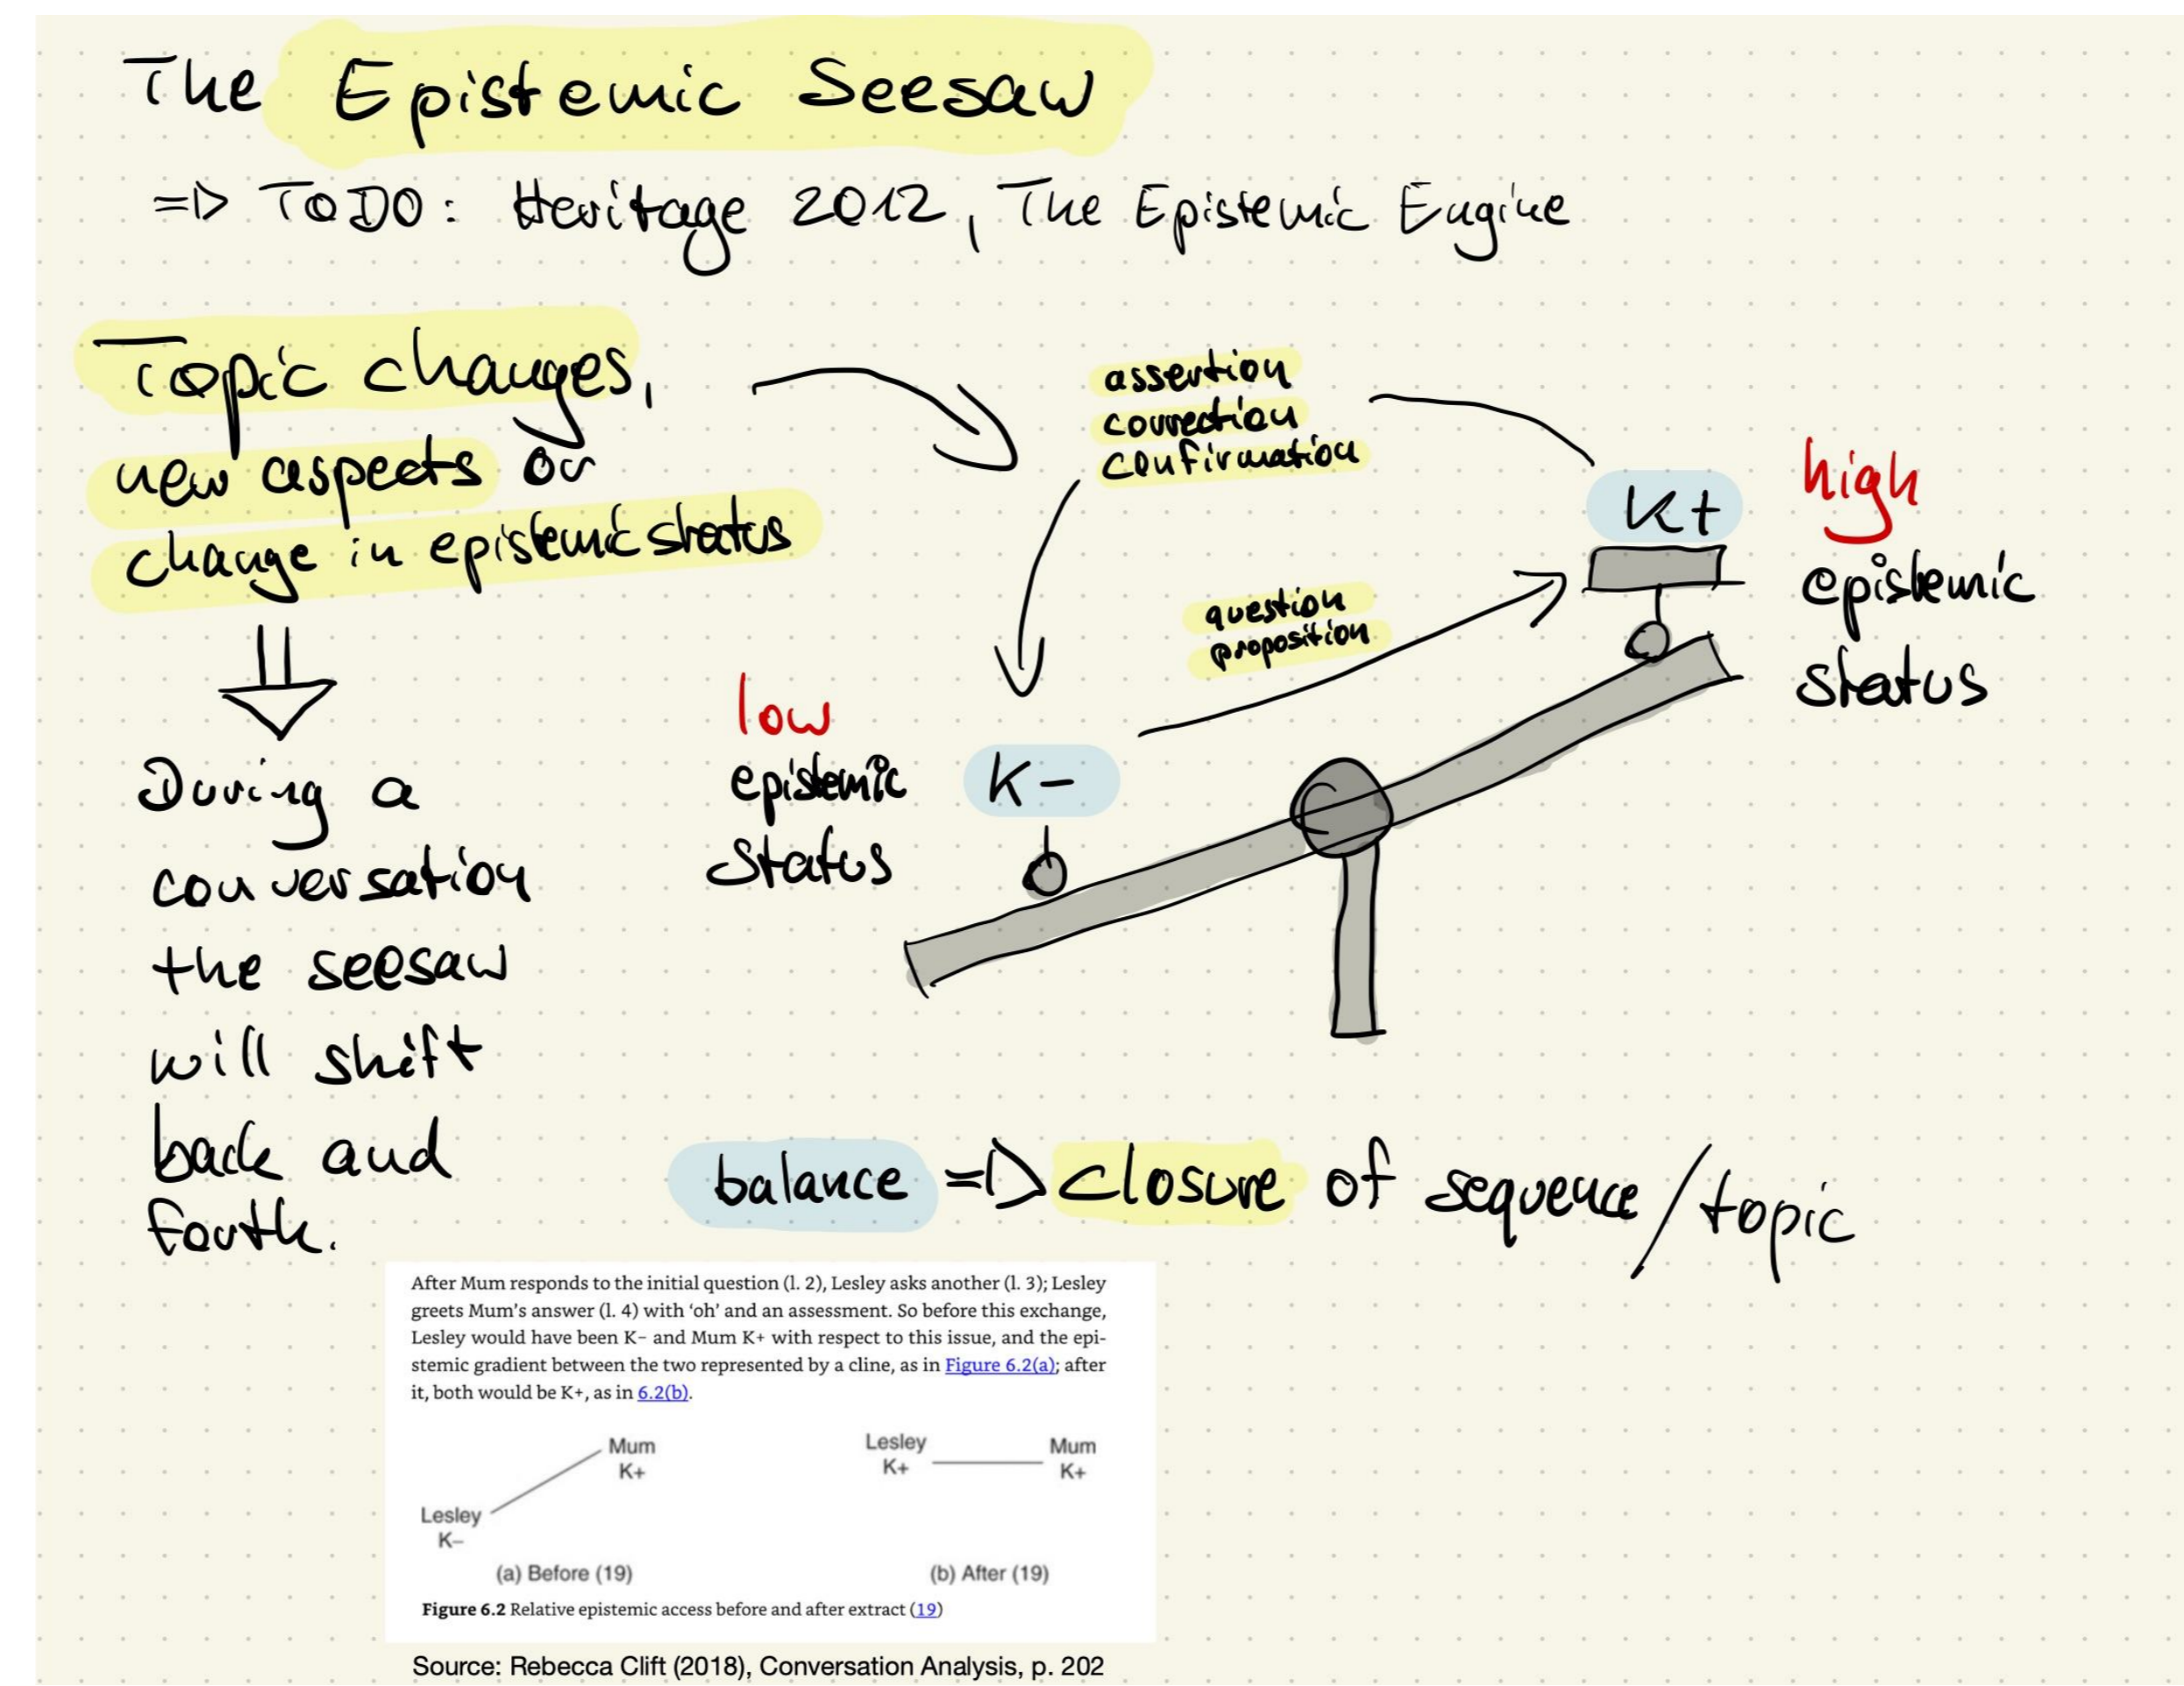 The Epistemic Seesaw
=> TODO: Heritage 2012, The Epistemic Engine
Topic changes,
new aspects or
change in epistemic status
During a
conversation
the seesaw
will shift
back and
forth.
assertion
correction
confirmation
question
proposition
K+
high
epistemic
status
low
epistemic
status
K-
balance => closure of sequence/topic
After Mum responds to the initial question (l. 2), Lesley asks another (l. 3); Lesley
greets Mum's answer (l. 4) with 'oh' and an assessment. So before this exchange,
Lesley would have been K– and Mum K+ with respect to this issue, and the epi-
stemic gradient between the two represented by a cline, as in Figure 6.2(a); after
it, both would be K+, as in 6.2(b).
Mum
K+
Lesley
K–
(a) Before (19)
Lesley
K+
Mum
K+
(b) After (19)
Figure 6.2 Relative epistemic access before and after extract (19)
Source: Rebecca Clift (2018), Conversation Analysis, p. 202